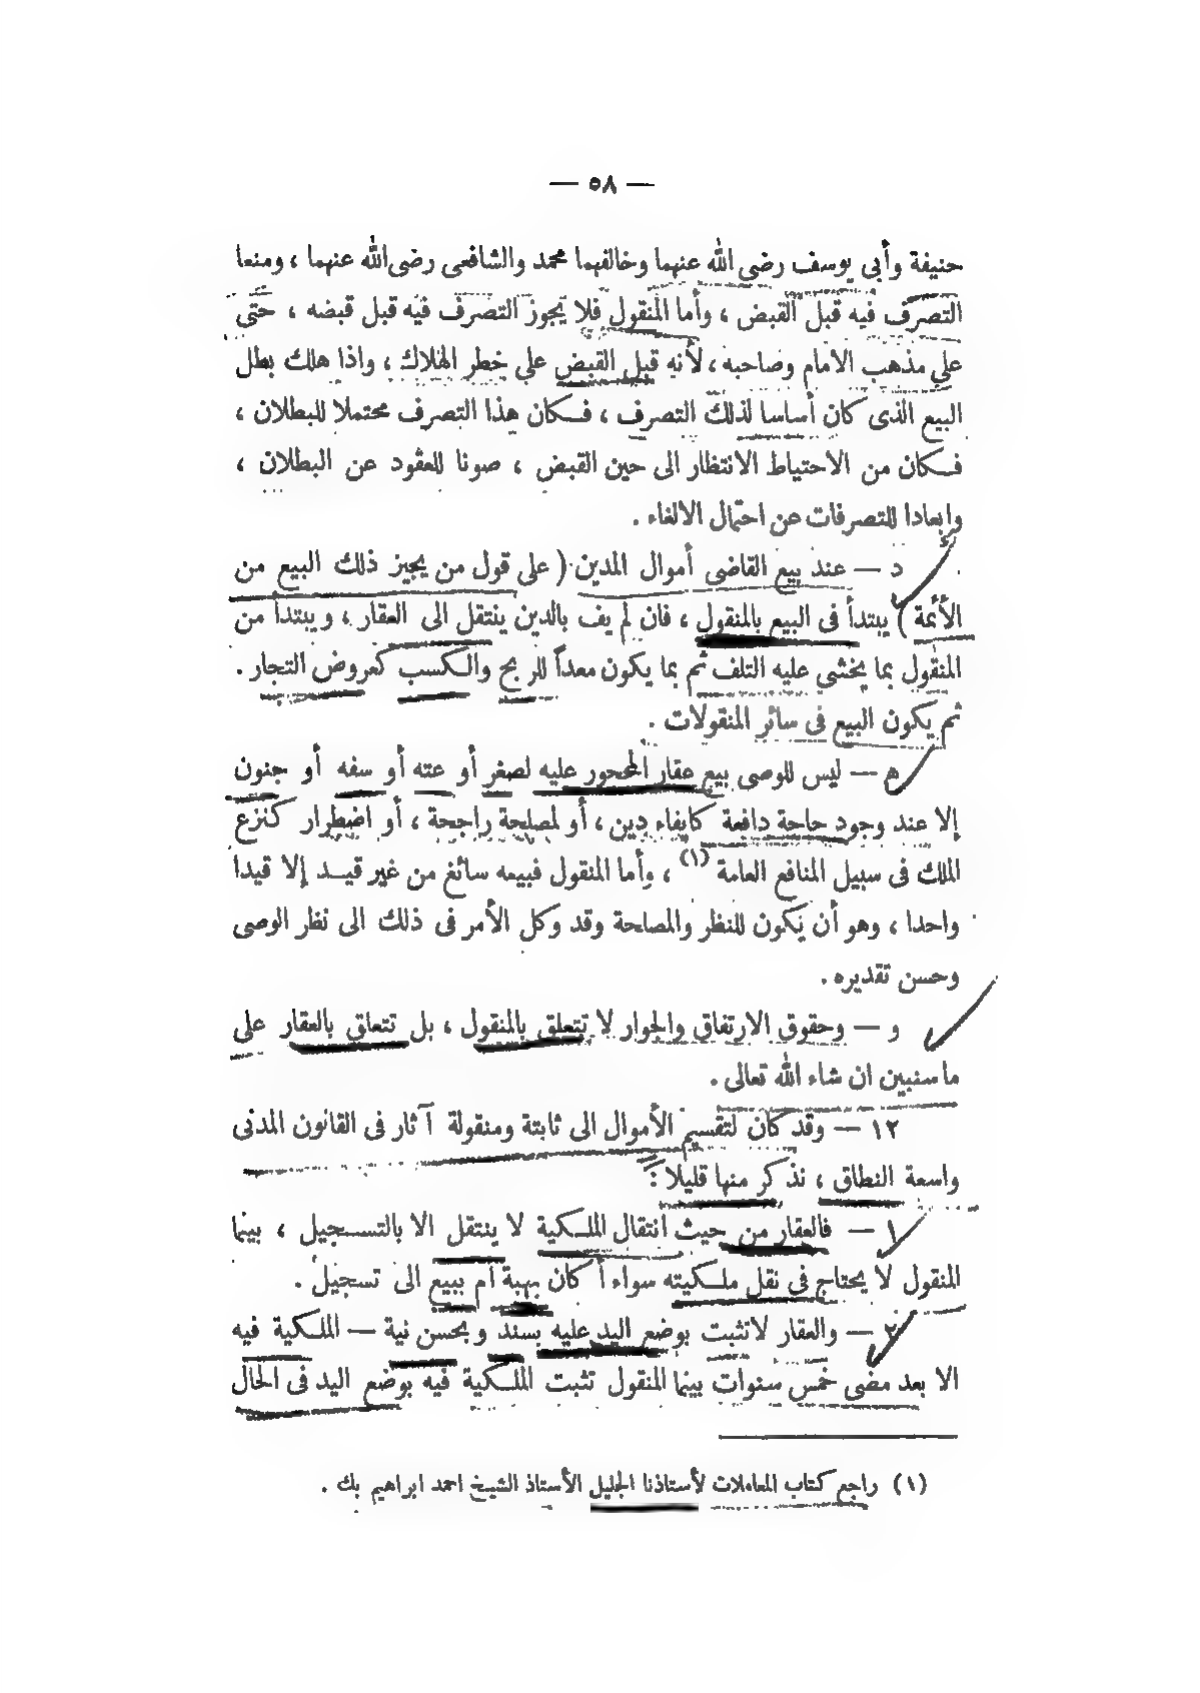 — ٥٨ —
حنيفة وأبى يوسف رضى الله عنهما وخالفهما محمد والشافعى رضى الله عنهما ، ومنعا
التصرف فيه قبل القبض ، وأما المنقول فلا يجوز التصرف فيه قبل قبضه ، حتى
على مذهب الامام وصاحبه ، لأنه قبل القبض على خطر الهلاك ، واذا هلك بطل
البيع الذى كان أساسا لذلك التصرف ، فكان هذا التصرف محتملا للبطلان ،
فكان من الاحتياط الانتظار الى حين القبض ، صونا للعقود عن البطلان ،
وابعادا للتصرفات عن احتمال الالغاء .
د — عند بيع القاضى أموال المدين ( على قول من يجيز ذلك البيع من
الأئمة ) يبتدأ فى البيع بالمنقول ، فان لم يف بالدين ينتقل الى العقار ، ويبتدأ من
المنقول بما يخشى عليه التلف ثم بما يكون معداً للربح والكسب كعروض التجار .
ثم يكون البيع فى سائر المنقولات .
ه — ليس للوصى بيع عقار المحجور عليه لصغر أو عته أو سفه أو جنون
إلا عند وجود حاجة دافعة كايفاء دين ، أو لمصلحة راجحة ، أو اضطرار كنزع
الملك فى سبيل المنافع العامة (١) ، وأما المنقول فبيعه سائغ من غير قيد إلا قيدا
واحدا ، وهو أن يكون للنظر والمصلحة وقد وكل الأمر فى ذلك الى نظر الوصى
وحسن تقديره .
و — وحقوق الارتفاق والجوار لا تتعلق بالمنقول ، بل تتعلق بالعقار على
ما سنبين ان شاء الله تعالى .
١٢ — وقد كان لتقسيم الأموال الى ثابتة ومنقولة آثار فى القانون المدنى
واسعة النطاق ، نذكر منها قليلا :
١ — فالعقار من حيث انتقال الملكية لا ينتقل الا بالتسجيل ، بينما
المنقول لا يحتاج فى نقل ملكيته سواء أ كان بهبة أم ببيع الى تسجيل .
٢ — والعقار لا تثبت بوضع اليد عليه بسند وبحسن نية — الملكية فيه
الا بعد مضى خمس سنوات بينما المنقول تثبت الملكية فيه بوضع اليد فى الحال
(١) راجع كتاب المعاملات لأستاذنا الجليل الأستاذ الشيخ احمد ابراهيم بك .